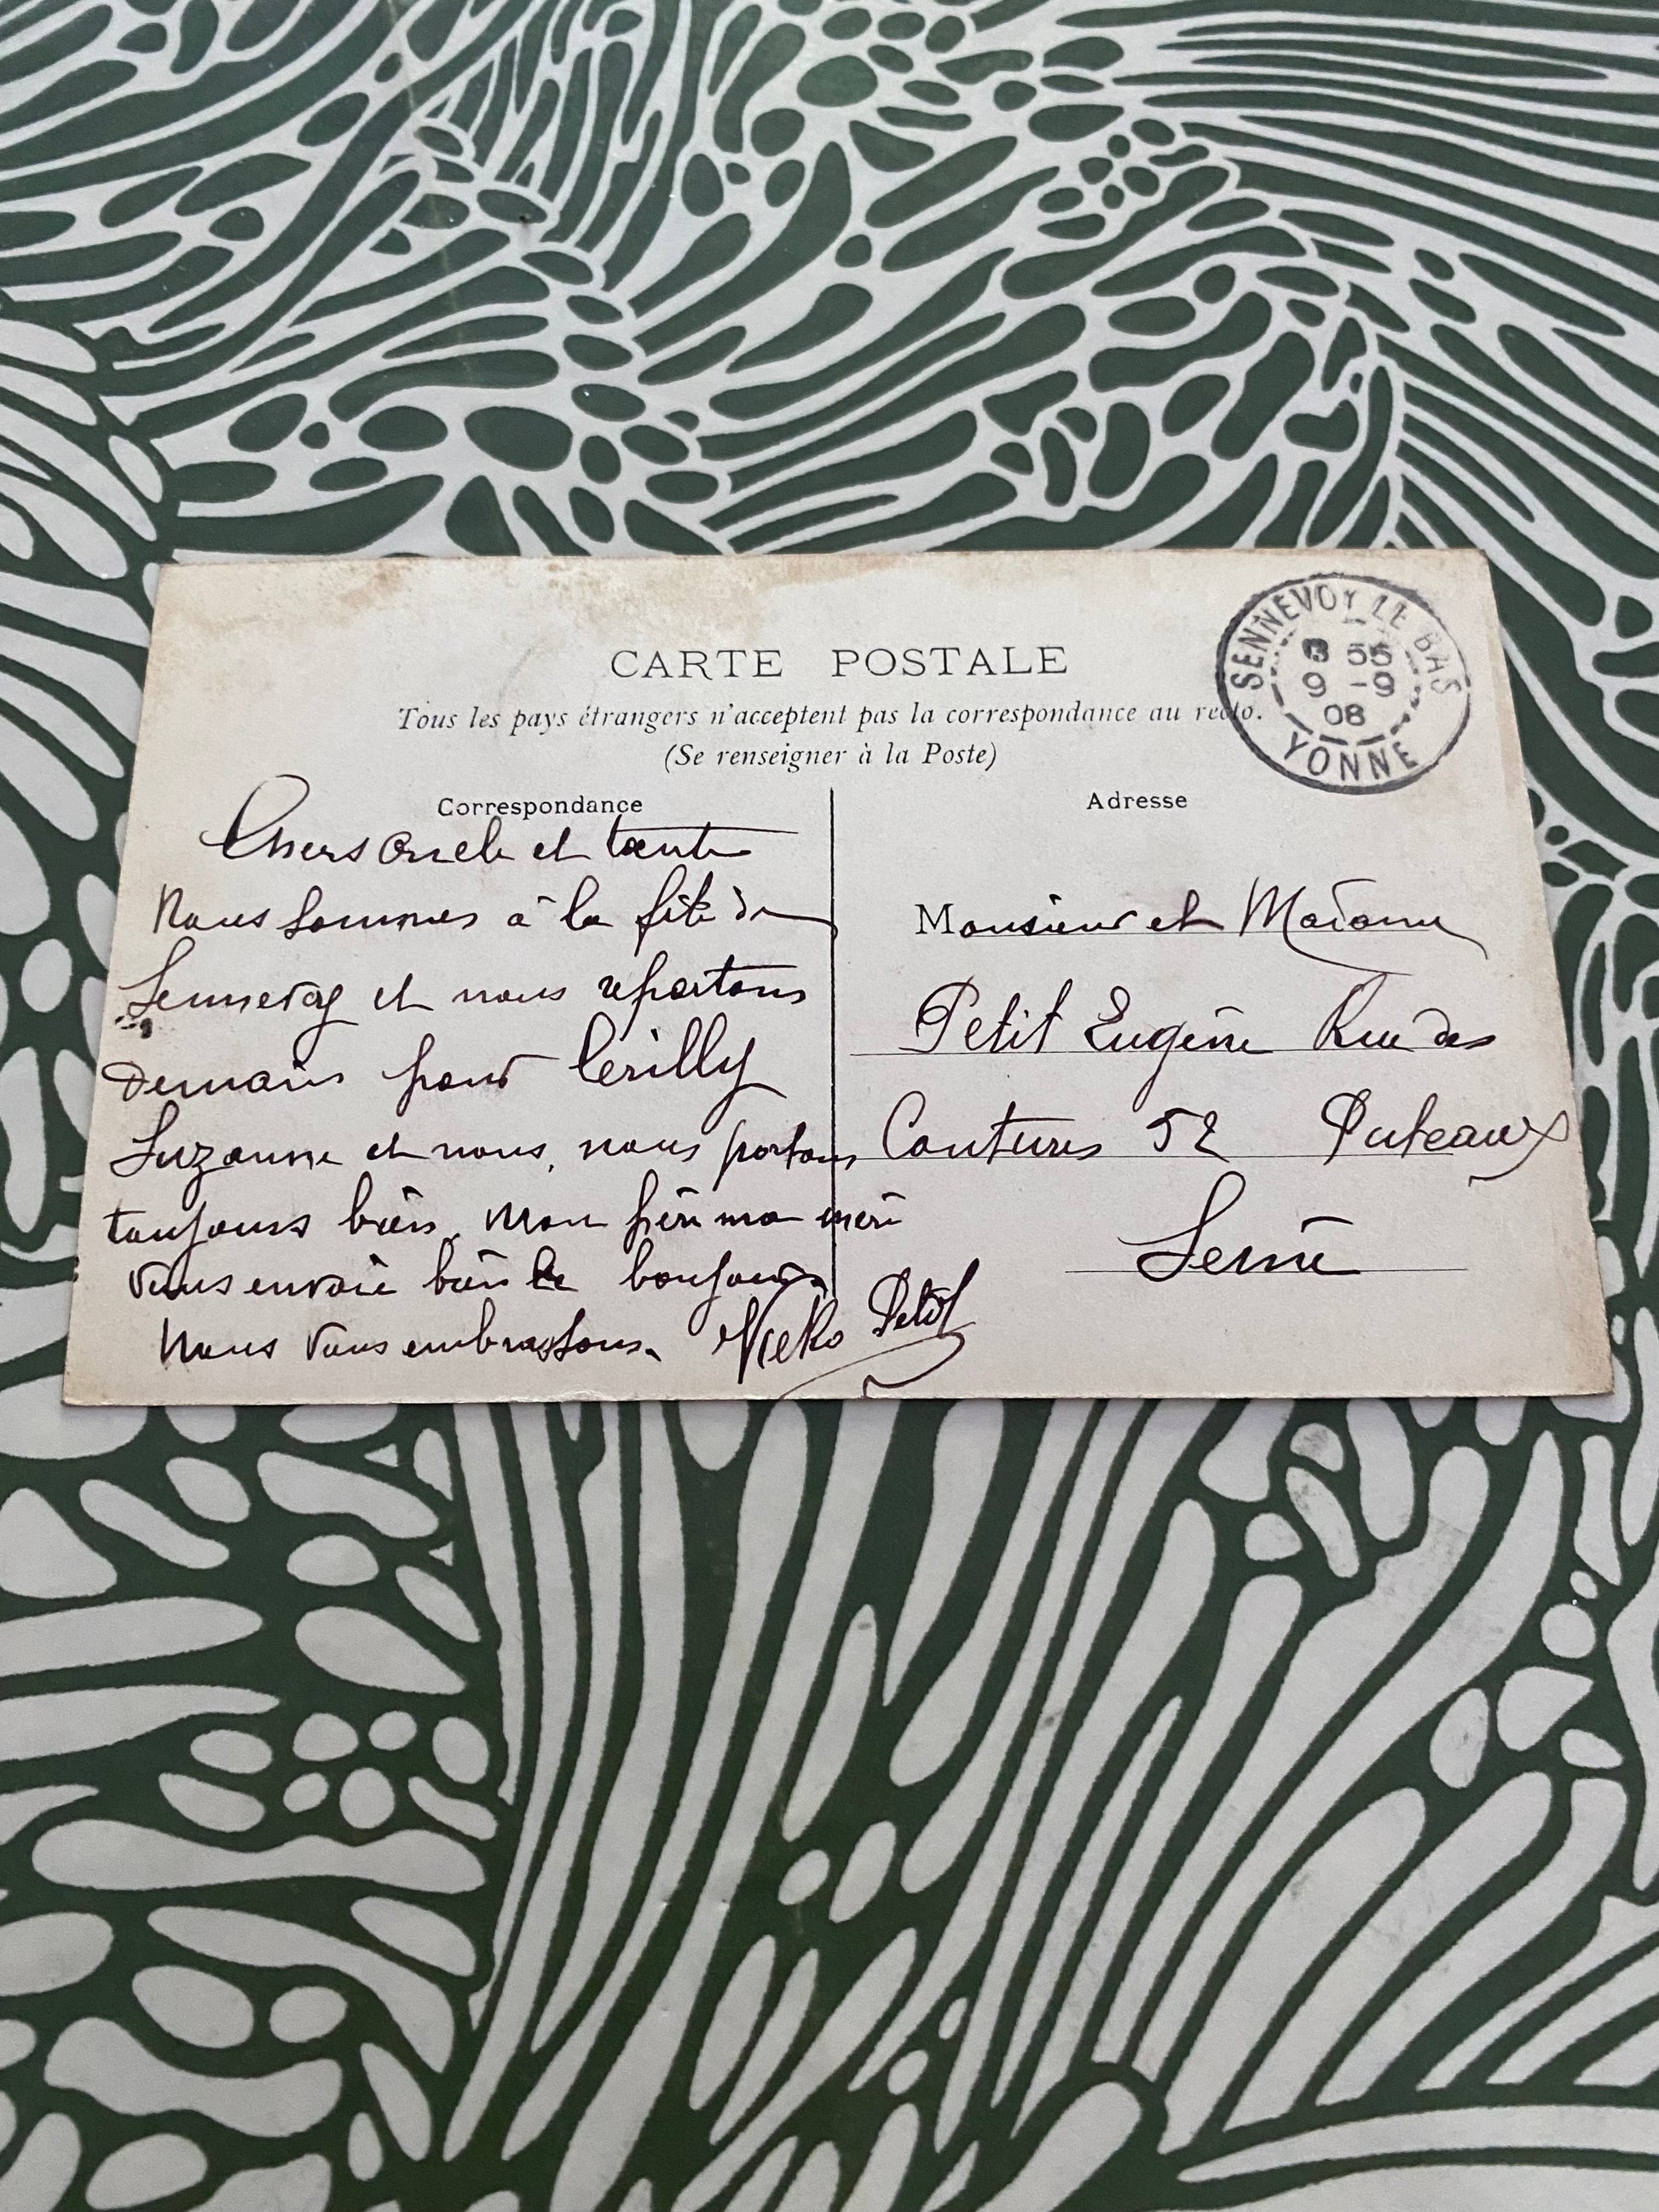 CARTE POSTALE
Tous les pays étrangers n'acceptent pas la correspondance au recto.
(Se renseigner à la Poste)
SENNEVOY LE BAS
3 55
9 -9
08
YONNE
Correspondance
Chers oncle et tante
Nous sommes à la fête de
Sennevoy et nous repartons
demain pour Cerilly
Suzanne et nous, nous portons
toujours bien. Mon père ma mère
vous envoie bien le bonjour
Nous vous embrassons.
Petit
Adresse
Monsieur et Madame
Petit Eugène Rue des
Coutures 52 Puteaux
Seine